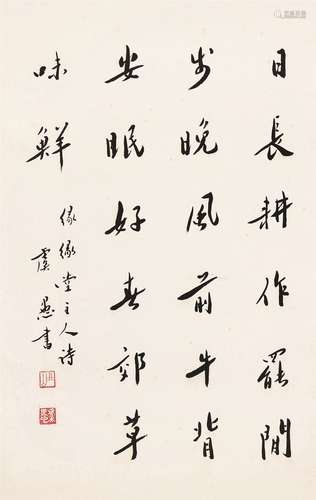 日長耕作罷閒
步晚風前牛背
安眠好春郊草
味鮮
緣緣堂主人詩
虞愚書